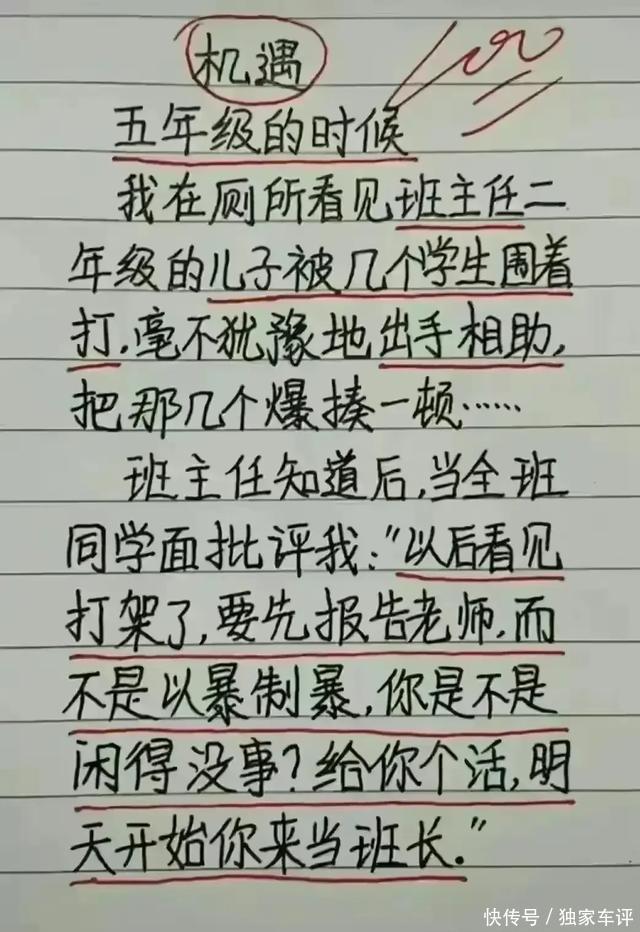 机遇
100
五年级的时候
我在厕所看见班主任二
年级的儿子被几个学生围着
打,毫不犹豫地出手相助,
把那几个爆揍一顿……
班主任知道后,当全班
同学面批评我:"以后看见
打架了,要先报告老师,而
不是以暴制暴,你是不是
闲得没事?给你个活,明
天开始你来当班长."
快传号/独家车评